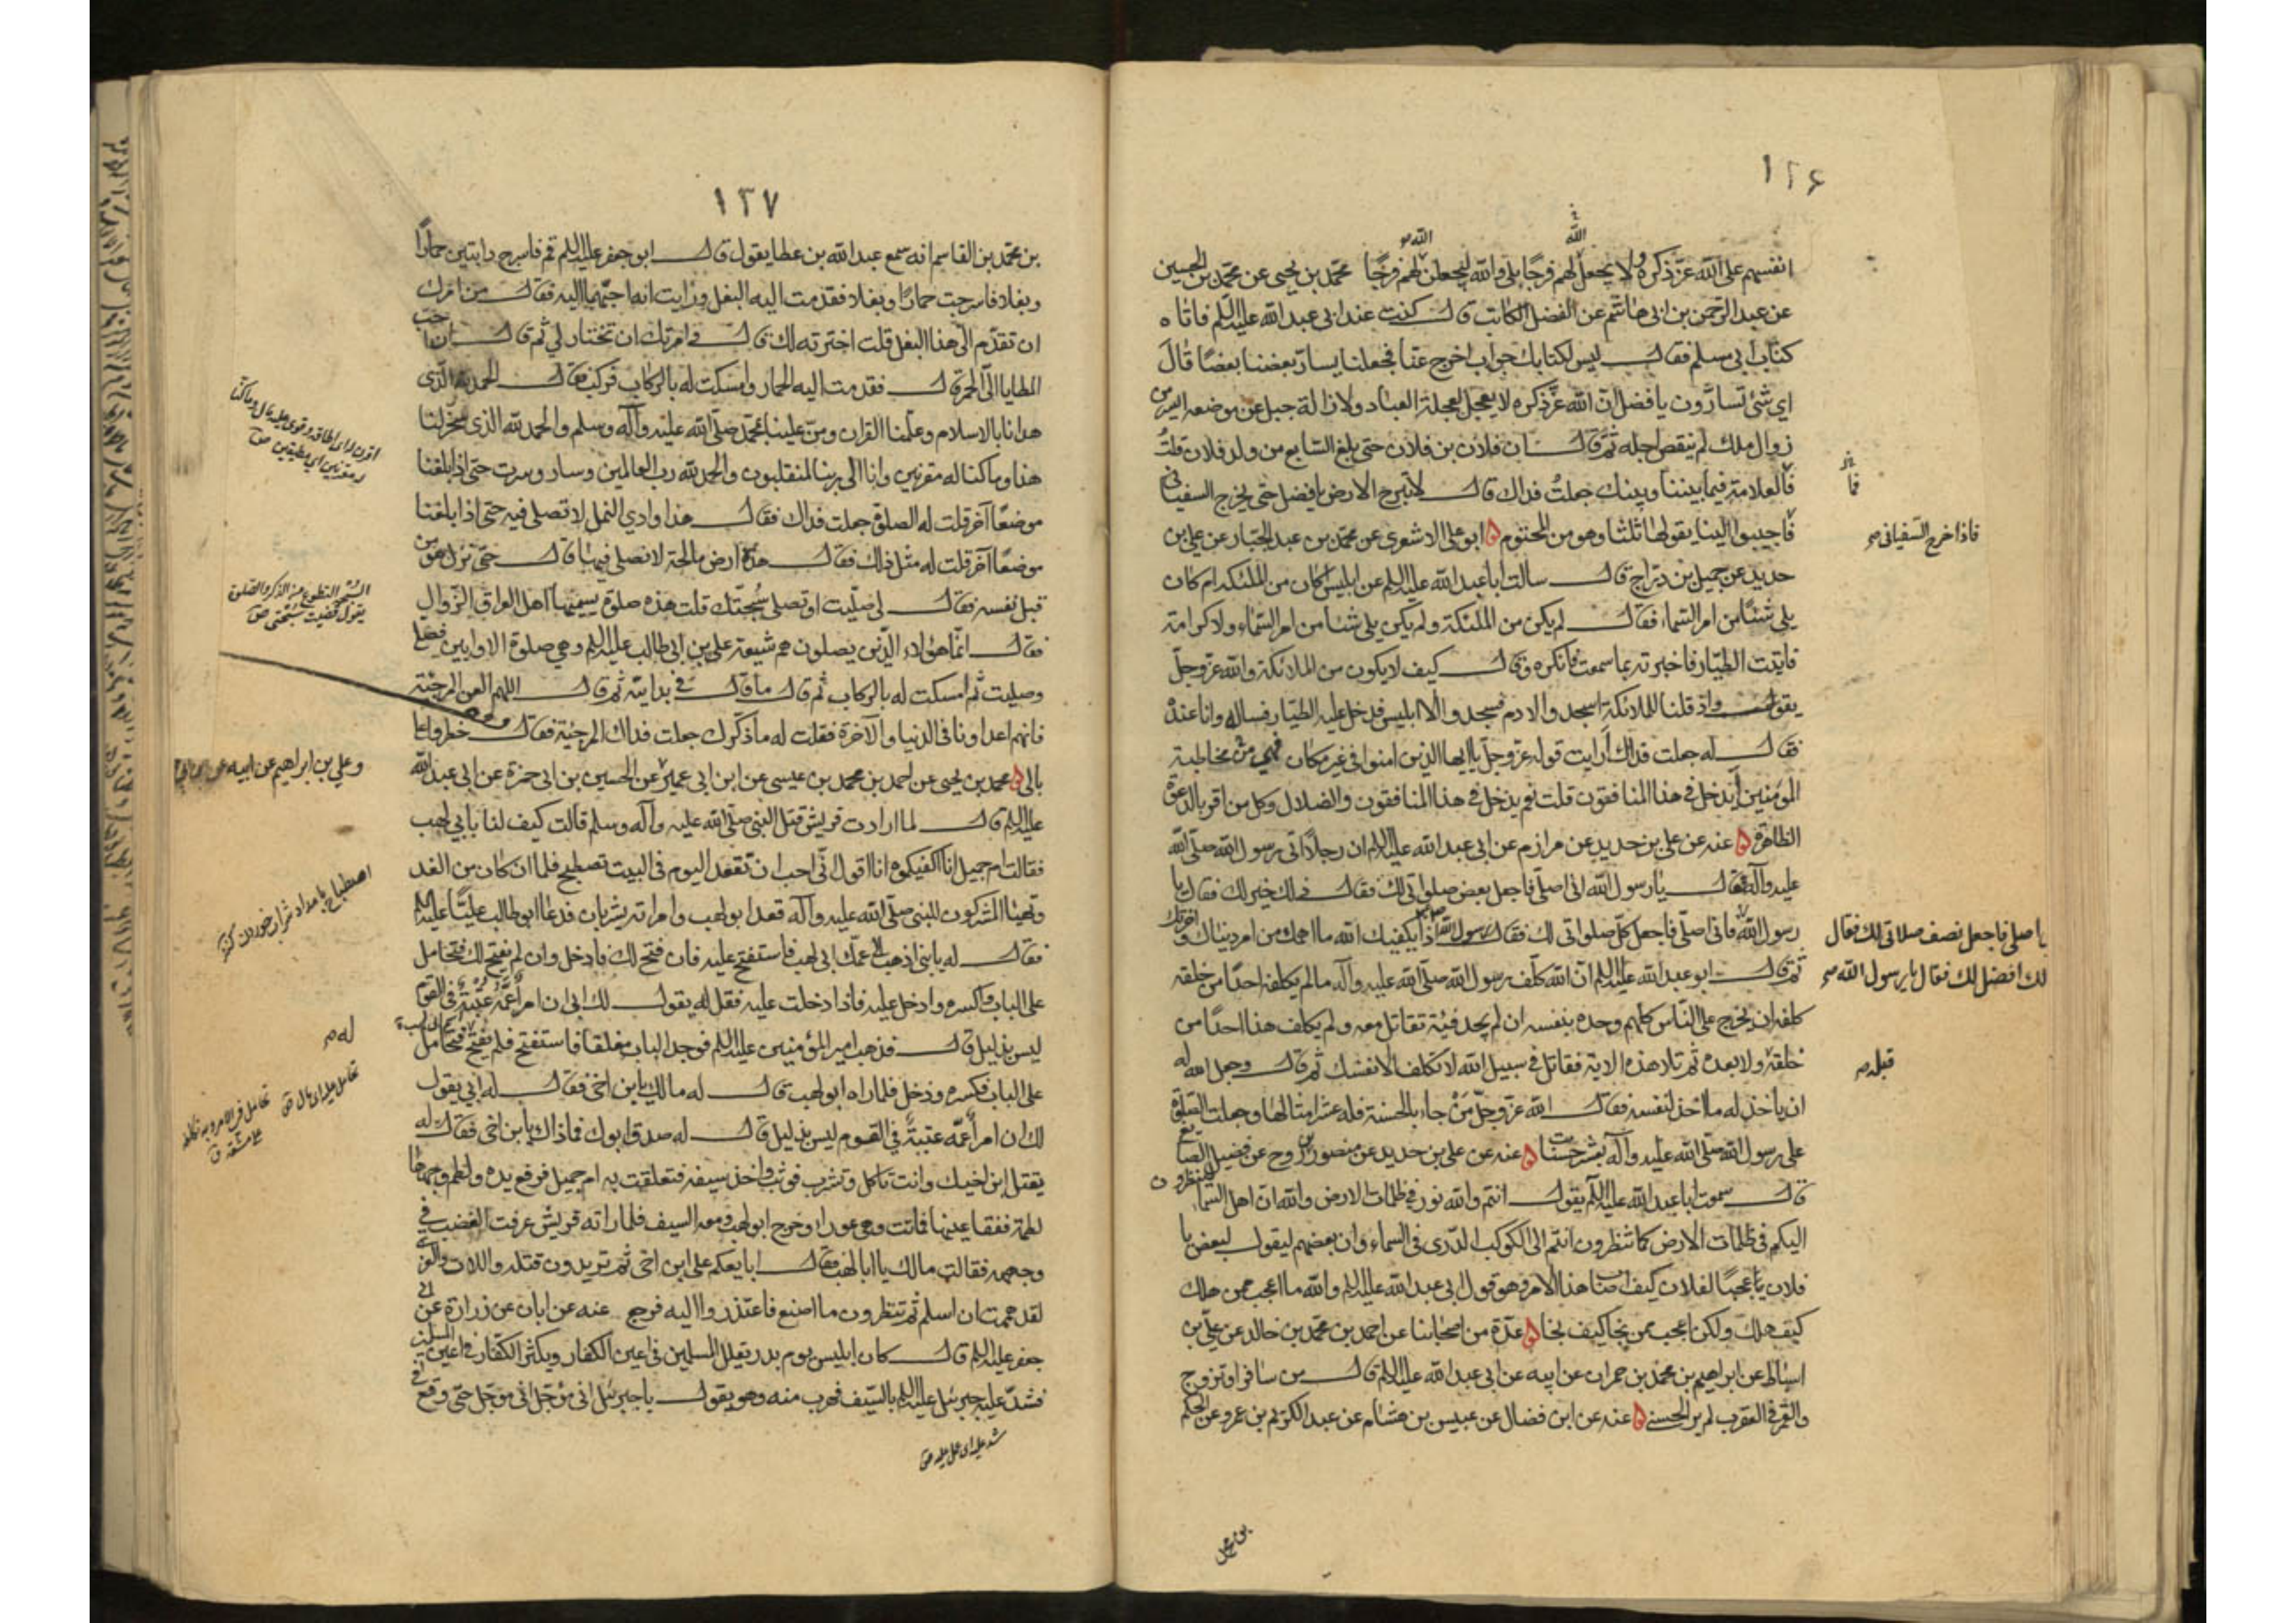 ١٢۶
انفسهم على الله عز ذكره ولا يجعل لهم فرجا بلى والله ليجعلن الله لهم فرجا محمد بن يحيى عن محمد بن الحسين
عن عبد الرحمن بن ابى هاشم عن الفضل الكاتب قال كنت عند ابى عبد الله عليه السلم فاتاه
كتاب ابى مسلم فقال ليس لكتابك جواب اخرج عنا فجعلنا يسار بعضنا بعضا قال
اي شئ تسارون يا فضل ان الله عز ذكره لا يعجل لعجلة العباد ولازالة جبل عن موضعه ايسر من
زوال ملك لم ينقص اجله ثم قال ان فلان بن فلان حتى بلغ السابع من ولد فلان قلت
فالعلامة فيما بيننا وبينك جعلت فداك قال لا تبرح الارض يا فضل حتى يخرج السفيانى
فاذا خرج السفيانى
فاجيبوا الينا يقولها ثلثا وهو من المحتوم ابو على الاشعرى عن محمد بن عبد الجبار عن علي بن
حديد عن جميل بن دراج قال سالت ابا عبد الله عليه السلم عن ابليس اكان من الملئكة ام كان
يلي شيئا من امر السماء فقال لم يكن من الملئكة ولم يكن يلي شيئا من امر السماء ولا كرامة
فاتيت الطيار فاخبرته بما سمعت فانكره وقال كيف لا يكون من الملائكة والله عز وجل
يقول واذ قلنا للملائكة اسجدوا لادم فسجدوا الا ابليس فدخل عليه الطيار فساله وانا عنده
فقال له جعلت فداك أرايت قوله عز وجل يا ايها الذين امنوا في غير مكان من مخاطبة
المؤمنين أيدخل في هذا المنافقون قلت نعم يدخل في هذا المنافقون والضلال وكل من اقر بالدعوة
الظاهرة عنه عن علي بن حديد عن مرازم عن ابى عبد الله عليه السلم ان رجلا اتى رسول الله صلى الله
عليه وآله فقال يا رسول الله انى اصلي فاجعل بعض صلواتى لك فقال ذلك خير لك فقال يا
رسول الله فانى اصلي فاجعل كل صلواتى لك فقال رسول الله اذا يكفيك الله ما اهمك من امر دنياك واخرتك
اصلى فاجعل نصف صلاتى لك فقال
لك افضل لك فقال يا رسول الله
ثم قال ابو عبد الله عليه السلم ان الله كلف رسول الله صلى الله عليه وآله ما لم يكلفه احدا من خلقه
كلفه ان يخرج على الناس كلهم وحده بنفسه ان لم يجد فئة تقاتل معه ولم يكلف هذا احدا من
خلقه ولا بعده ثم تلا هذه الاية فقاتل في سبيل الله لا تكلف الا نفسك ثم قال وجعل الله له
قبله
ان ياخذ له ما اخذ لنفسه فقال الله عز وجل من جاء بالحسنة فله عشر امثالها وجعلت الصلوة
على رسول الله صلى الله عليه وآله بعشر حسنات عنه عن علي بن حديد عن منصور بن روح عن فضيل الصايغ
قال سمعت ابا عبد الله عليه السلم يقول انتم والله نور في ظلمات الارض والله ان اهل السماء لينظرون
اليكم في ظلمات الارض كما تنظرون انتم الى الكوكب الدرى فى السماء وان بعضهم ليقول لبعض يا
فلان يا عجبا لفلان كيف اصاب هذا الامر وهو قول ابى عبد الله عليه السلم والله ما اعجب ممن هلك
كيف هلك ولكن اعجب ممن نجا كيف نجا عدة من اصحابنا عن احمد بن محمد بن خالد عن علي بن
اسباط عن ابراهيم بن محمد بن حمران عن ابيه عن ابى عبد الله عليه السلم قال من سافر او تزوج
والقمر فى العقرب لم ير الحسنى عنه عن ابن فضال عن عبيس بن هشام عن عبد الكريم بن عمرو عن الحكم
بن محمد
١٢٧
بن محمد بن القاسم انه سمع عبد الله بن عطا يقول قال ابو جعفر عليه السلم قم فاسرج دابتين حمارا
وبغلا فاسرجت حمارا وبغلا فقدمت اليه البغل ورايت انه احبهما اليه فقال من امرك
ان تقدم الي هذا البغل قلت اخترته لك قال وامرتك ان تختار لي ثم قال ان احب
المطايا الي الحمر قال فقدمت اليه الحمار وامسكت له بالركاب فركب فقال الحمد لله الذى
هدانا بالاسلام وعلمنا القران ومن علينا بمحمد صلى الله عليه وآله وسلم والحمد لله الذى سخر لنا
هذا وما كنا له مقرنين وانا الى ربنا لمنقلبون والحمد لله رب العالمين وسار وسرت حتى اذا بلغنا
موضعا آخر قلت له الصلوة جعلت فداك فقال هذا وادي النمل لا تصلي فيه حتى اذا بلغنا
موضعا آخر قلت له مثل ذلك فقال هذه ارض مالحة لا نصلي فيها قال حتى نزل هو من
قبل نفسه فقال لي صليت او تصلي سبحتك قلت هذه صلوة يسميها اهل العراق الزوال
السبحة التطوع من الذكر والصلوة
يقول قضيت سبحتى ص
فقال انما هؤلاء الذين يصلون هم شيعة علي بن ابى طالب عليه السلم وهي صلوة الاوابين فصلى
وصليت ثم امسكت له بالركاب ثم قال ما قال في بدايته ثم قال اللهم العن المرجئة
فانهم اعداونا فى الدنيا والآخرة فقلت له ما ذكرك جعلت فداك المرجئة فقال خطروا على
بالى محمد بن يحيى عن احمد بن محمد بن عيسى عن ابن ابى عمير عن الحسين بن ابى حمزة عن ابى عبد الله
وعلي بن ابراهيم عن ابيه عن
عليه السلم قال لما ارادت قريش قتل النبي صلى الله عليه وآله وسلم قالت كيف لنا بابي لهب
فقالت ام جميل انا اكفيكموه انا اقول له انى احب ان تقعد اليوم فى البيت نصطبح فلما ان كان من الغد
وتهيا المشركون للنبى صلى الله عليه وآله قعد ابو لهب وامراته يشربان فدعا ابو طالب عليا عليه السلم
فقال له يا بنى اذهب الى عمك ابى لهب فاستفتح عليه فان فتح لك فادخل وان لم يفتح لك فتحامل
على الباب واكسره وادخل عليه فاذا دخلت عليه فقل له يقول لك ابى ان امرأ عمه عينه فى القوم
له
ليس بذليل قال فذهب امير المؤمنين عليه السلم فوجد الباب مغلقا فاستفتح فلم يفتح فتحامل
على الباب فكسره ودخل فلما راه ابو لهب قال له مالك يا بن اخى فقال له ابى يقول
لك ان امرأ عمه عينه في القوم ليس بذليل قال له صدق ابوك فما ذاك يا بن اخى فقال له
يقتل ابن اخيك وانت تاكل وتشرب فوثب واخذ سيفه فتعلقت به ام جميل فرفع يده ولطم وجهها
لطمة ففقا عينها فماتت وهي عوراء وخرج ابو لهب ومعه السيف فلما راته قريش عرفت الغضب في
وجهه فقالت مالك يا ابا لهب فقال ابايعكم على ابن اخى ثم تريدون قتله واللات والعزى
لقد هممت ان اسلم ثم تنظرون ما اصنع فاعتذروا اليه فرجع عنه عن ابان عن زرارة عن ابى
جعفر عليه السلم قال كان ابليس يوم بدر يقلل المسلمين فى اعين الكفار ويكثر الكفار فى اعين المسلمين
فشد عليه جبرئيل عليه السلم بالسيف فهرب منه وهو يقول يا جبرئيل انى مؤجل انى مؤجل حتى وقع فى
شد عليه اى حمل عليه ص